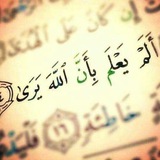 إِن كَانَ عَلَى الْهُدَىٰ
أَلَمْ يَعْلَم بِأَنَّ اللَّهَ يَرَىٰ
خَاطِئَةٍ ١٦